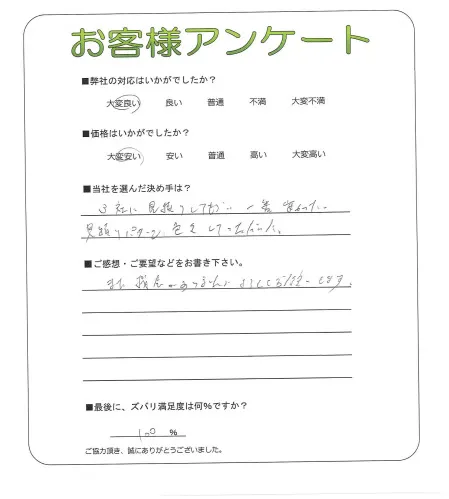 お客様アンケート
■弊社の対応はいかがでしたか？
大変良い 良い 普通 不満 大変不満
■価格はいかがでしたか？
大変安い 安い 普通 高い 大変高い
■当社を選んだ決め手は？
3社に見積りして 一番
見積りパターン
■ご感想・ご要望などをお書き下さい。
また機会がありましたら よろしくお願いします。
■最後に、ズバリ満足度は何％ですか？
100 ％
ご協力頂き、誠にありがとうございました。